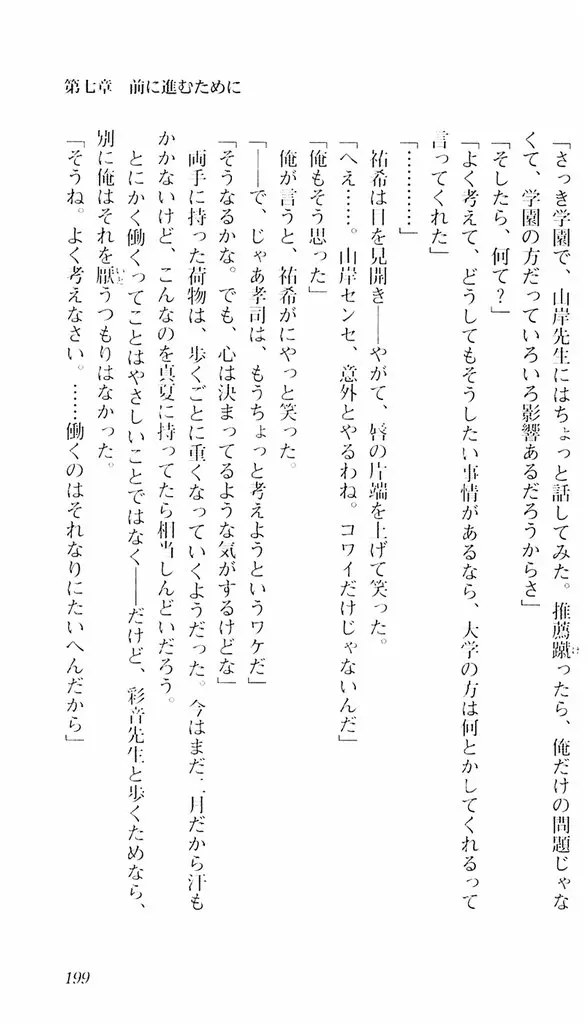 第七章　前に進むために
「さっき学園で、山岸先生にはちょっと話してみた。推薦蹴ったら、俺だけの問題じゃな
くて、学園の方だっていろいろ影響あるだろうからさ」
「そしたら、何て？」
「よく考えて、どうしてもそうしたい事情があるなら、大学の方は何とかしてくれるって
言ってくれた」
「…………」
祐希は目を見開き――やがて、唇の片端を上げて笑った。
「へえ……。山岸センセ、意外とやるわね。コワイだけじゃないんだ」
「俺もそう思った」
俺が言うと、祐希がにやっと笑った。
「――で、じゃあ孝司は、もうちょっと考えようというワケだ」
「そうなるかな。でも、心は決まってるような気がするけどな」
両手に持った荷物は、歩くごとに重くなっていくようだった。今はまだ二月だから汗も
かかないけど、こんなのを真夏に持ってたら相当しんどいだろう。
とにかく働くってことはやさしいことではなく――だけど、彩音先生と歩くためなら、
別に俺はそれを厭うつもりはなかった。
「そうね。よく考えなさい。……働くのはそれなりにたいへんだから」
199